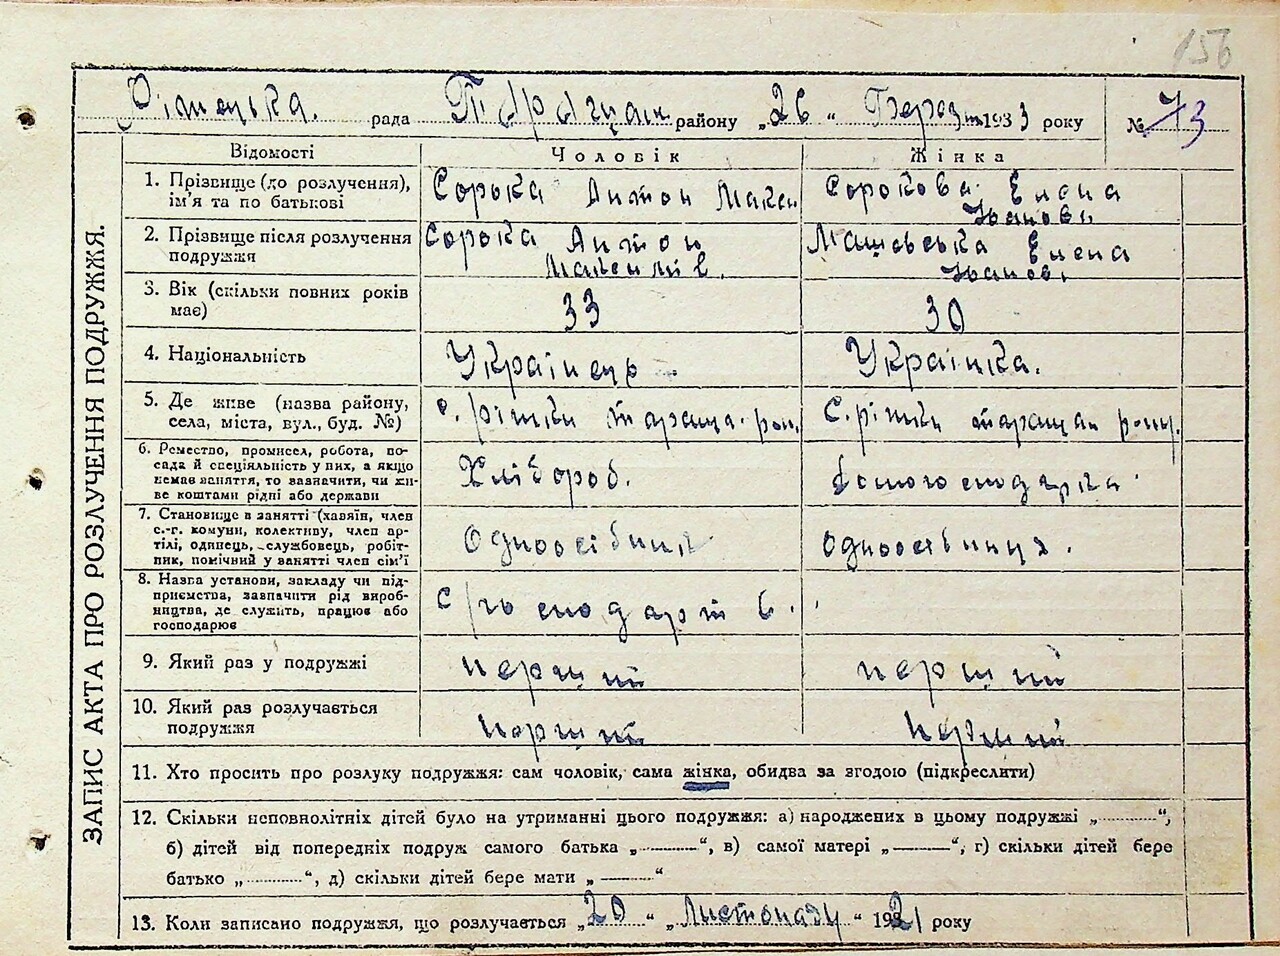 156
Ріжецька. рада Таращан району „26“ Берез 1933 року № 73
ЗАПИС АКТА ПРО РОЗЛУЧЕННЯ ПОДРУЖЖЯ.
Відомості Чоловік Жінка
1. Прізвище (до розлучення), ім'я та по батькові Сорока Антон Макси Сорокова Елена Іванові
2. Прізвище після розлучення подружжя Сорока Антон Елена Іванові
3. Вік (скільки повних років має) 33 30
4. Національність Українець Українка.
5. Де живе (назва району, села, міста, вул., буд. №) с. ріжки тараща. рон. с. ріжки таращан рону.
6. Ремество, промисел, робота, посада й спеціяльність у них, а якщо немає заняття, то зазначити, чи живе коштами рідні або держави Хлібороб. домогосподарка.
7. Становище в занятті (хазяїн, член с.-г. комуни, колективу, член артілі, одинець, службовець, робітник, помічний у занятті член сім'ї Одноосібник Одноосібниця.
8. Назва установи, закладу чи підприємства, зазначити рід виробництва, де служить, працює або господарює с/господарст в.
9. Який раз у подружжі перший перший
10. Який раз розлучається подружжя перший перший
11. Хто просить про розлуку подружжя: сам чоловік, сама жінка, обидва за згодою (підкреслити)
12. Скільки неповнолітніх дітей було на утриманні цього подружжя: а) народжених в цьому подружжі „..........“,
б) дітей від попередніх подруж самого батька „..........“, в) самої матері „..........“, г) скільки дітей бере
батько „..........“, д) скільки дітей бере мати „..........“
13. Коли записано подружжя, що розлучається „20“ „Листопаду“ 1921 року